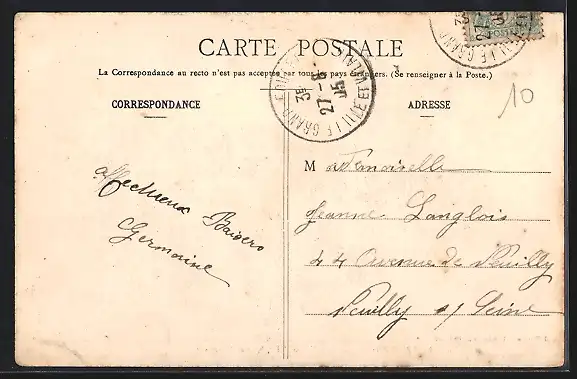 CARTE POSTALE
La Correspondance au recto n'est pas acceptée par tous les pays étrangers. (Se renseigner à la Poste.)
CORRESPONDANCE
ADRESSE
10
affectueux Baisers
Germaine
Mademoiselle
Jeanne Langlois
44 Avenue de Neuilly
Neuilly s/ Seine
3E
27 - 6
05